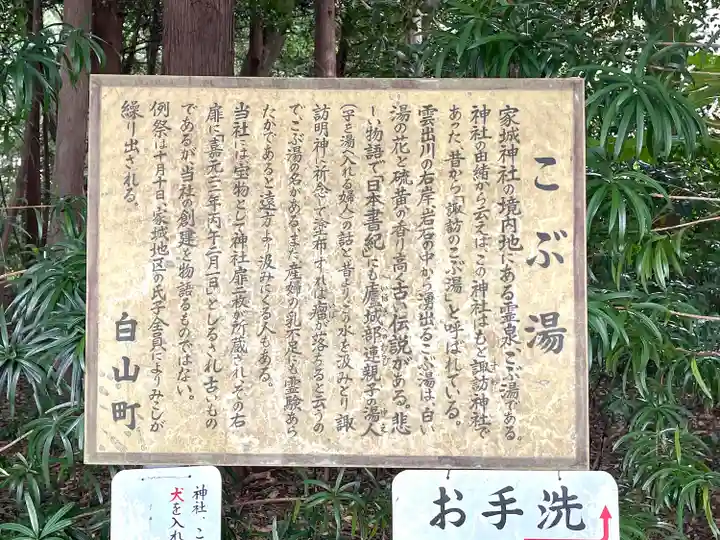 こぶ湯
家城神社の境内地にある霊泉、こぶ湯である。
神社の由緒から云えば、この神社はもと諏訪神社で
あった、昔から「諏訪のこぶ湯」と呼ばれている。
雲出川の右岸、岩石の中から湧出るこぶ湯は、白い
湯の花と硫黄の香り高く、古い伝説がある。悲
しい物語で「日本書紀」にも廬城部連親子の湯人
(子を湯へ入れる婦人)の話と昔よりこの水を汲みとり、諏
訪明神に祈念して塗布すれば瘤が落ちると云うの
でこぶ湯の名がある。また、産婦の乳不足にも霊験あら
たかであると遠方より汲みにくる人もある。
当社には宝物として神社扉二枚が所蔵され、その右
扉に「嘉元二三年丙午二月一日」としるされ、古いもの
であるが当社の創建を物語るものではない。
例祭は十月十日、家城地区の氏子全員によりみこしが
繰り出される。
白山町
神社、こ
犬を入れ
お手洗